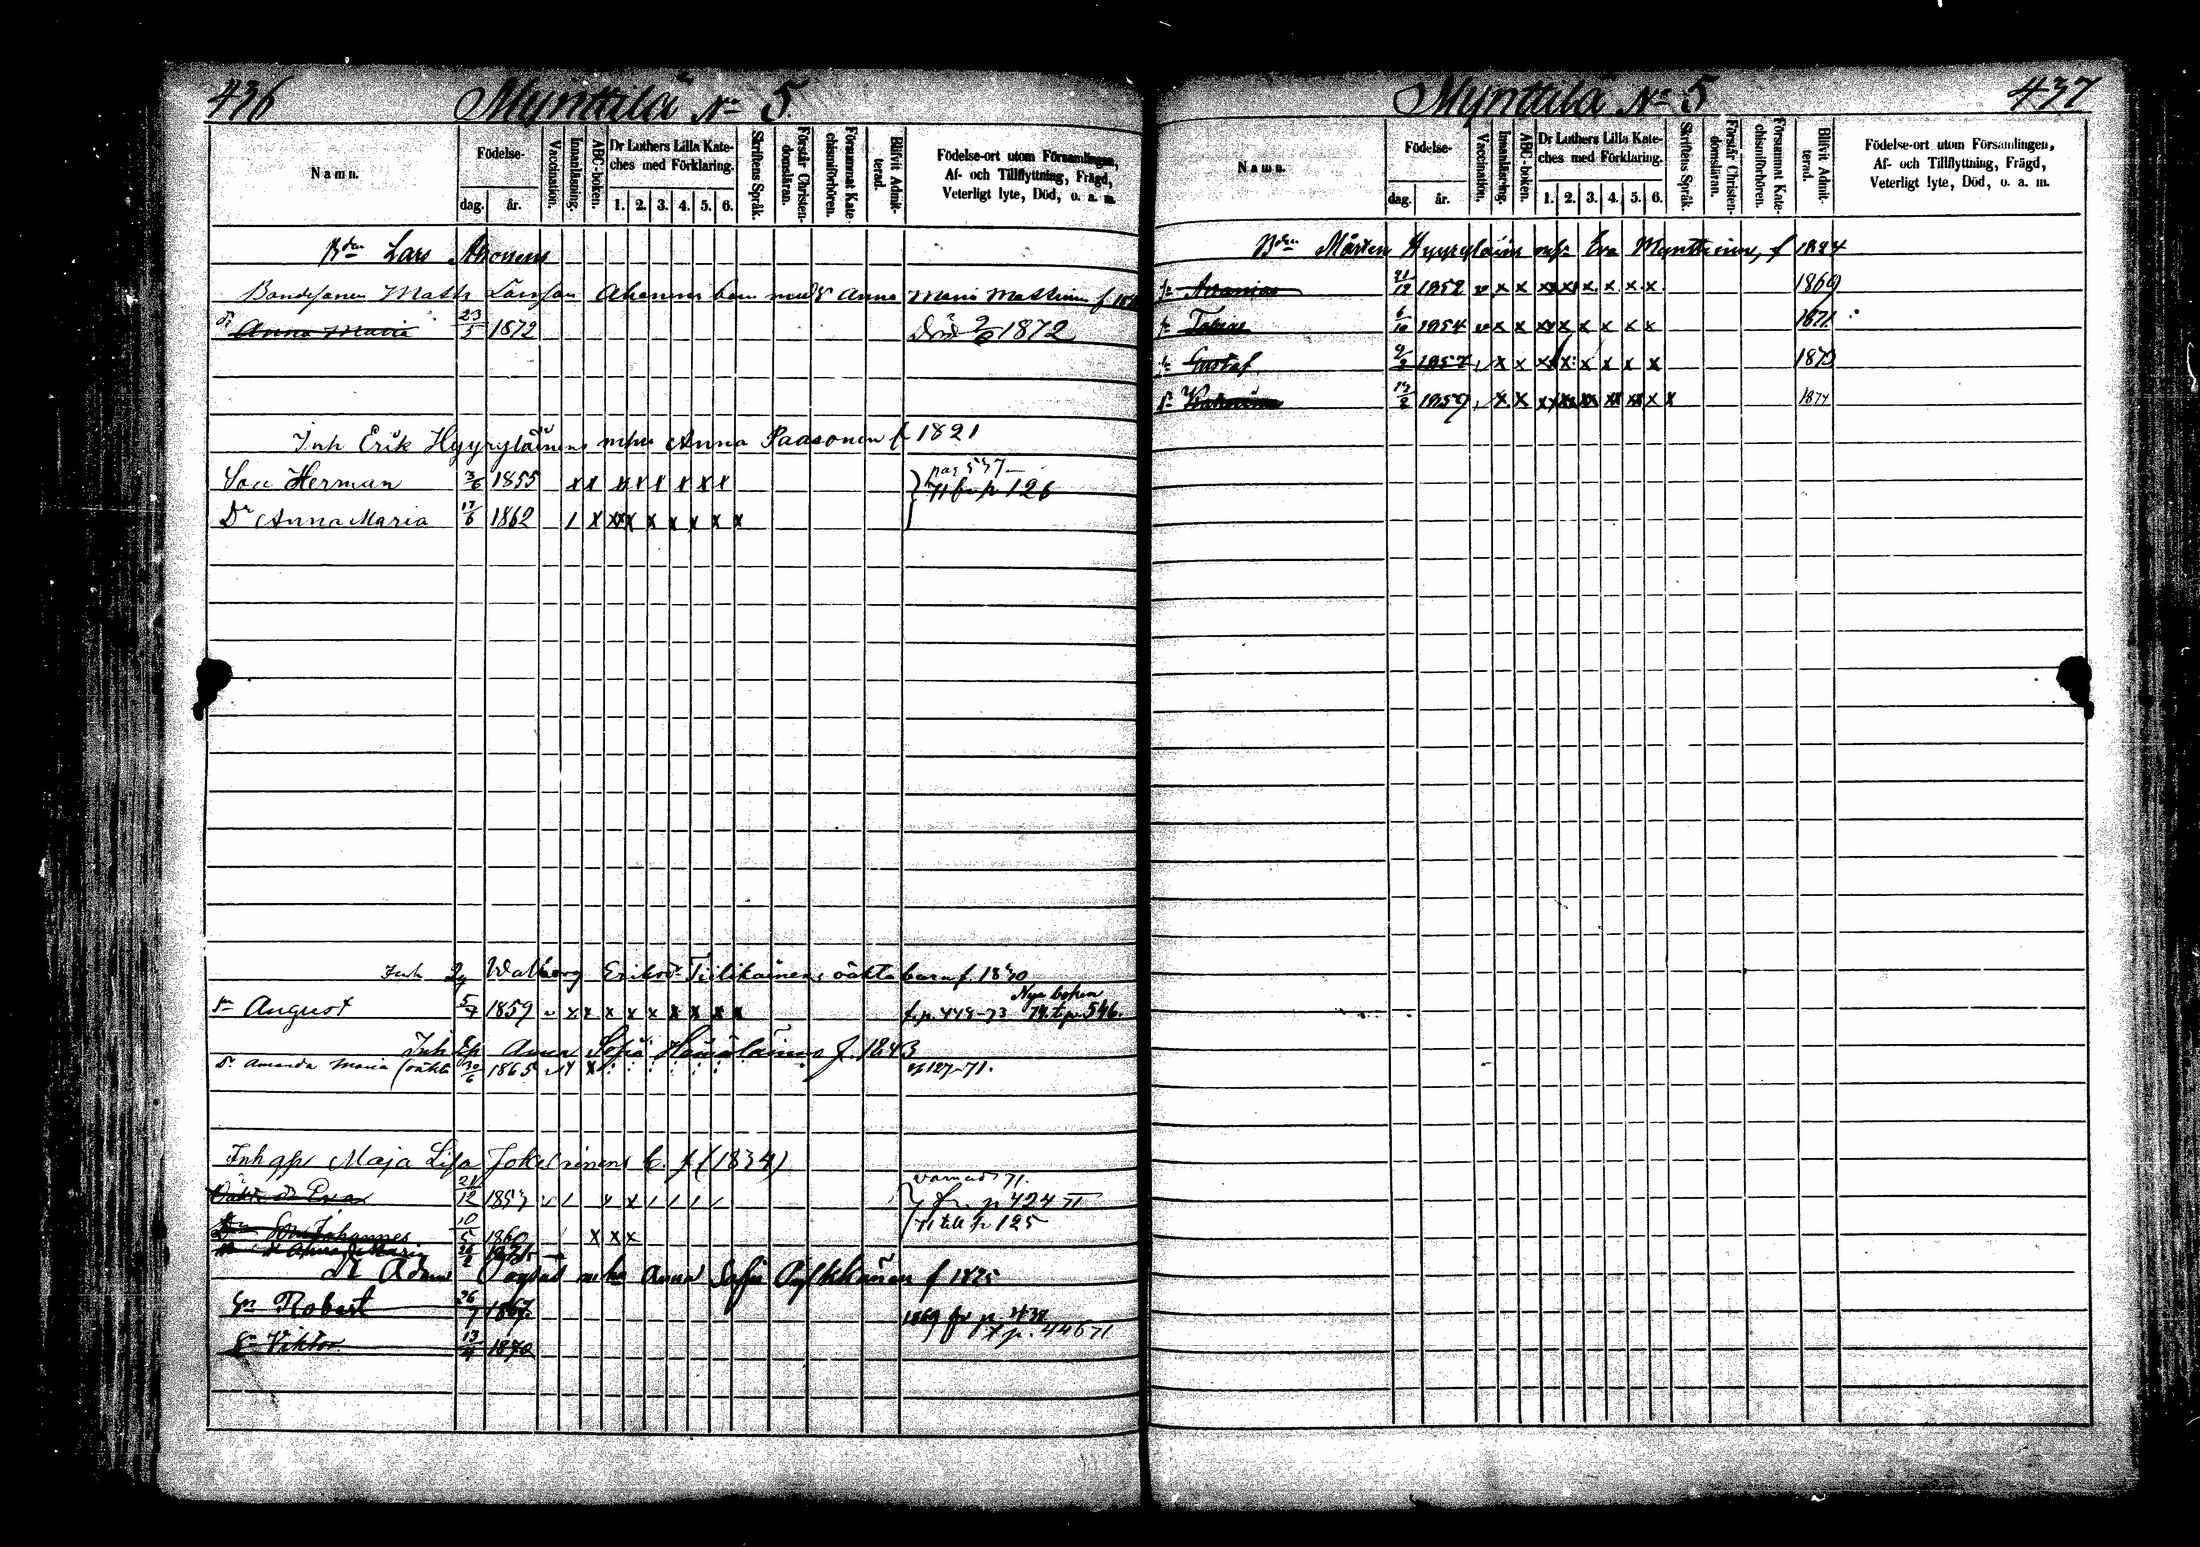 436
Mynttilä No 5.
Namn.
Födelse-
dag. år.
Vaccination.
Innanläsning.
ABC-boken.
Dr Luthers Lilla Kate-
ches med Förklaring.
1. 2. 3. 4. 5. 6.
Skriftens Språk.
Förstår Christen-
domsläran.
Försummat Kate-
chismiförhören.
Blifvit Admit-
terad.
Födelse-ort utom Församlingen,
Af- och Tillflyttning, Frägd,
Veterligt lyte, Död, o. a. m.
Bdn Lars Ahonens
Bondesonen Math Larsson Ahonens barn med Anna Maria
Dr Anna Maria 23/5 1872 Död 9/6 1872
Inh Erik Hyyryläinens mhu Anna Paasonen f 1821
Son Herman 3/6 1855 x x x x x x x x
pag 557
71 fr p 126
Dr Anna Maria 17/6 1862 / x xx x x x x x x
Inh Walborg Eriksdr Tiilikainens oäkta barn f. 1830
Sn August 5/4 1859 x x x x x x x x x
Nya boken
f. p. 448-73 74. t. p. 546.
Inh Anna Sofia Hämäläinens f. 1843
Dr Amanda Maria oäkta 30/6 1865 x
p 127-71.
Inh qp Maja Lisa Jokelainens b. f (1834)
Oäkta d Eva 21/12 1857
p 424 71
71 till p 125
Son Johannes 10/5 1860 x x x
Anna Maria
Adam mhu Anna Sofia Pylkkänen f 1825
Sn Robert 26/7 1867.
1869 fr p 438
t p. 446 71
Sn Viktor 13/4 1870
Mynttilä No 5
437
Namn.
Födelse-
dag. år.
Vaccination.
Innanläsning.
ABC-boken.
Dr Luthers Lilla Kate-
ches med Förklaring.
1. 2. 3. 4. 5. 6.
Skriftens Språk.
Förstår Christen-
domsläran.
Försummat Kate-
chismiförhören.
Blifvit Admit-
terad.
Födelse-ort utom Församlingen,
Af- och Tillflyttning, Frägd,
Veterligt lyte, Död, o. a. m.
Bdn Mårten Hyyryläins Eva Mynttinen, f 1824
Sn Ananias 21/12 1852 v x x xx xx x x x x 1869
Sn Tobias 6/10 1854 v x x xx x x x x x 1871
Sn Gustaf 9/3 1857 x x xx x x x x x 1873
Dr Katarina 17/2 1859 x x xx xx xx xx xx x x 1874